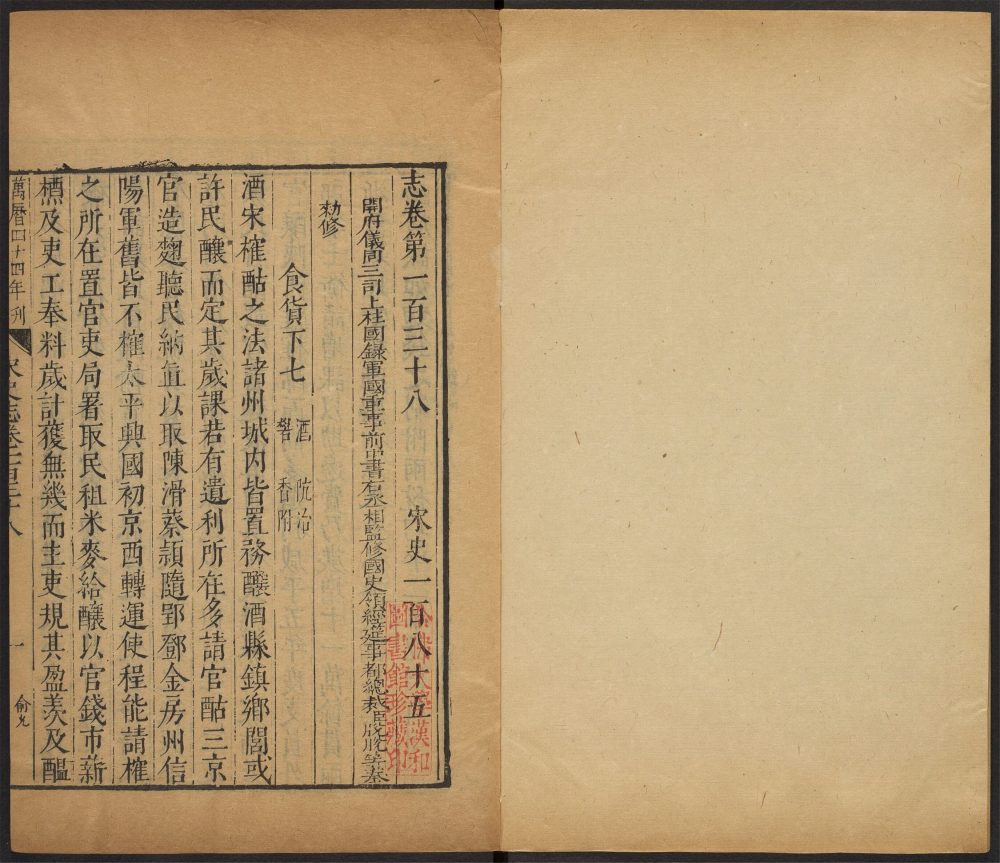 志卷第一百三十八　宋史一百八十五
開府儀同三司上柱國錄軍國重事前中書右丞相監修國史領經筵事都總裁臣脫脫等奉
勑修
食貨下七　酒　阬冶
礬　香附
酒宋榷酤之法諸州城内皆置務釀酒縣鎮鄉閭或
許民釀而定其歲課若有遺利所在多請官酤三京
官造麴聽民納直以取陳滑蔡潁隨郢鄧金房州信
陽軍舊皆不榷太平興國初京西轉運使程能請榷
之所在置官吏局署取民租米麥給釀以官錢市新
樵及吏工奉料歲計獲無幾而主吏規其盈羨及醞
萬曆四十四年刊　宋史志卷一百三十八　一　俞允
哈佛大學漢和
圖書館珍藏印